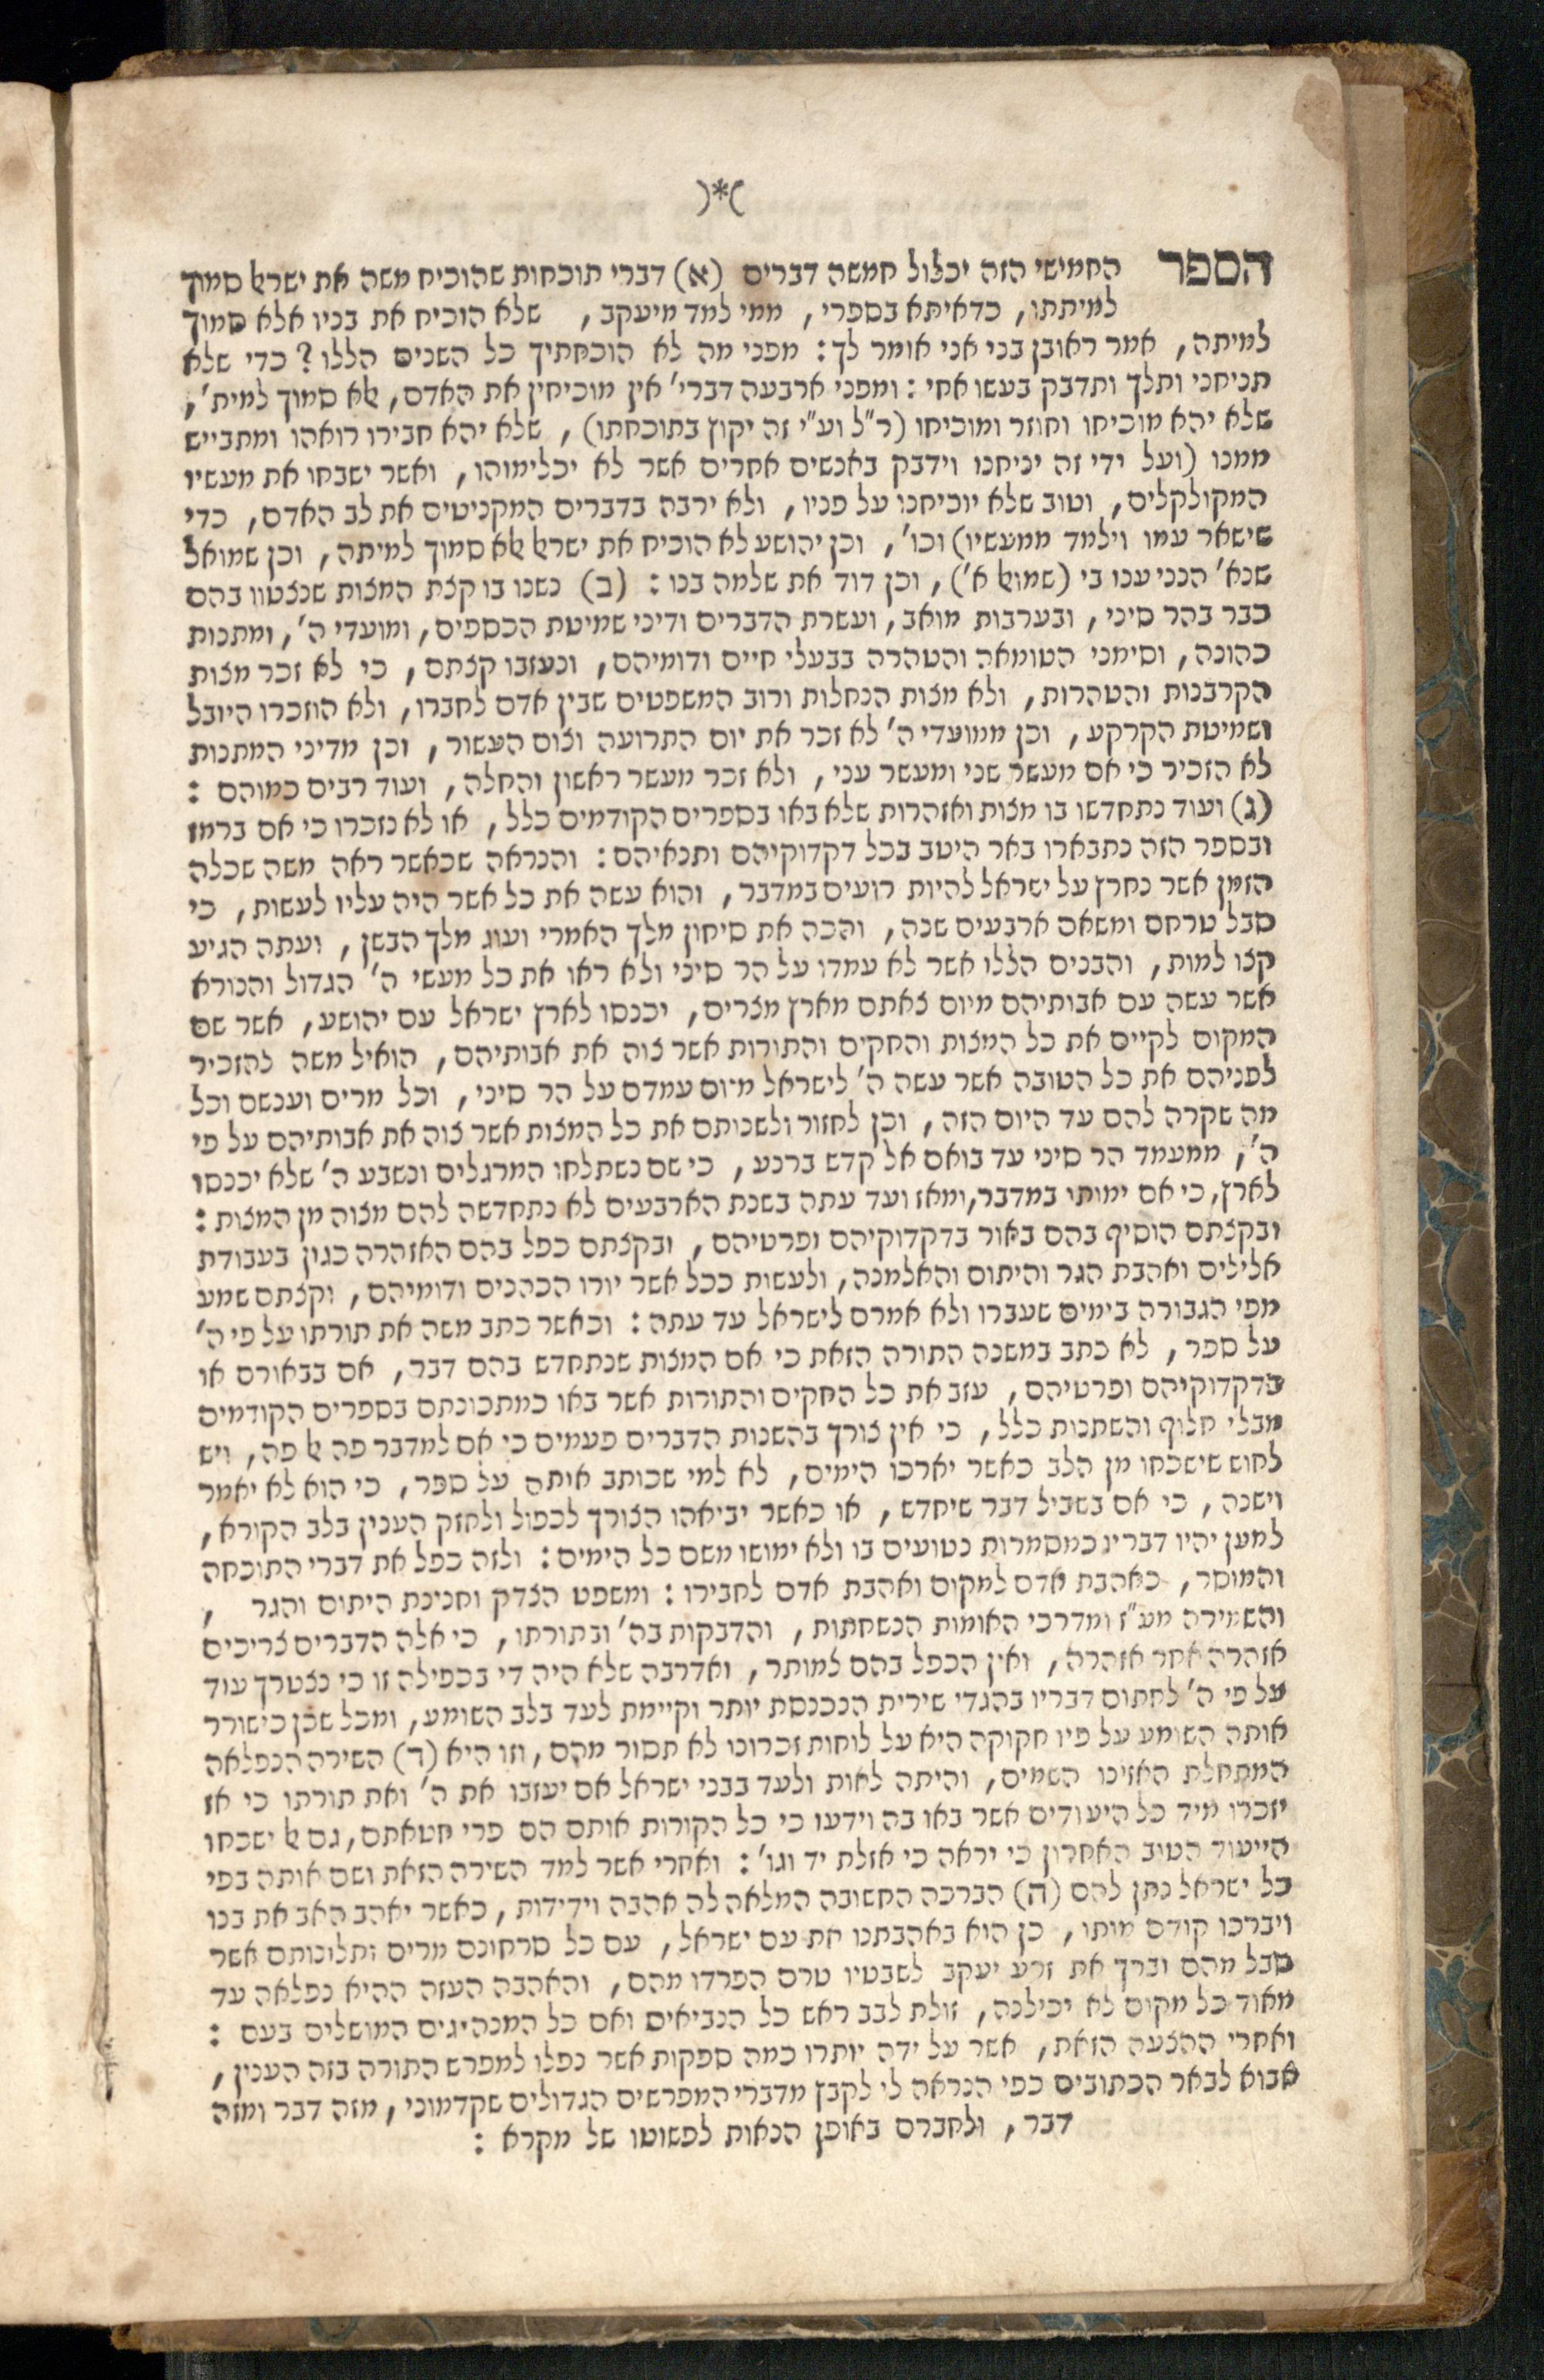 )*(
הספר החמישי הזה יכלול חמשה דברים (א) דברי תוכחות שהוכיח משה את ישראל סמוך
למיתתו, כדאיתא בספרי, ממי למד מיעקב, שלא הוכיח את בניו אלא סמוך
למיתה, אמר ראובן בני אני אומר לך: מפני מה לא הוכחתיך כל השנים הללו? כדי שלא
תניחני ותלך ותדבק בעשו אחי: ומפני ארבעה דברי' אין מוכיחין את האדם, אלא סמוך למית',
שלא יהא מוכיחו וחוזר ומוכיחו (ר"ל וע"י זה יקוץ בתוכחתו), שלא יהא חבירו רואהו ומתבייש
ממנו (ועל ידי זה יניחנו וידבק באנשים אחרים אשר לא יכלימוהו, ואשר ישבחו את מעשיו
המקולקלים, וטוב שלא יוכיחנו על פניו, ולא ירבה בדברים המקניטים את לב האדם, כדי
שישאר עמו וילמד ממעשיו) וכו', וכן יהושע לא הוכיח את ישראל אלא סמוך למיתה, וכן שמואל
שנא' הנני ענו בי (שמואל א'), וכן דוד את שלמה בנו: (ב) נשנו בו קצת המצות שנצטוו בהם
כבר בהר סיני, ובערבות מואב, ועשרת הדברים ודיני שמיטת הכספים, ומועדי ה', ומתנות
כהונה, וסימני הטומאה והטהרה בבעלי חיים ודומיהם, ונעזבו קצתם, כי לא זכר מצות
הקרבנות והטהרות, ולא מצות הנחלות ורוב המשפטים שבין אדם לחברו, ולא הוזכרו היובל
ושמיטת הקרקע, וכן ממועדי ה' לא זכר את יום התרועה וצום העשור, וכן מדיני המתנות
לא הזכיר כי אם מעשר שני ומעשר עני, ולא זכר מעשר ראשון והחלה, ועוד רבים כמוהם:
(ג) ועוד נתחדשו בו מצות ואזהרות שלא באו בספרים הקודמים כלל, או לא נזכרו כי אם ברמז
ובספר הזה נתבארו באר היטב בכל דקדוקיהם ותנאיהם: והנראה שכאשר ראה משה שכלה
הזמן אשר נחרץ על ישראל להיות רועים במדבר, והוא עשה את כל אשר היה עליו לעשות, כי
סבל טרחם ומשאם ארבעים שנה, והכה את סיחון מלך האמרי ועוג מלך הבשן, ועתה הגיע
קצו למות, והבנים הללו אשר לא עמדו על הר סיני ולא ראו את כל מעשי ה' הגדול והנורא
אשר עשה עם אבותיהם מיום צאתם מארץ מצרים, יכנסו לארץ ישראל עם יהושע, אשר שם
המקום לקיים את כל המצות והחקים והתורות אשר צוה את אבותיהם, הואיל משה להזכיר
לפניהם את כל הטובה אשר עשה ה' לישראל מיום עמדם על הר סיני, וכל מרים ועכשם וכל
מה שקרה להם עד היום הזה, וכן לחזור ולשנותם את כל המצות אשר צוה את אבותיהם על פי
ה', ממעמד הר סיני עד בואם אל קדש ברנע, כי שם נשתלחו המרגלים ונשבע ה' שלא יכנסו
לארץ, כי אם ימותו במדבר, ומאז ועד עתה בשנת הארבעים לא נתחדשה להם מצוה מן המצות:
ובקצתם הוסיף בהם באור בדקדוקיהם ופרטיהם, ובקצתם כפל בהם האזהרה כגון בעבודת
אלילים ואהבת הגר והיתום והאלמנה, ולעשות ככל אשר יורו הכהנים ודומיהם, וקצתם שמע
מפי הגבורה בימים שעברו ולא אמרם לישראל עד עתה: וכאשר כתב משה את תורתו על פי ה'
על ספר, לא כתב במשנה התורה הזאת כי אם המצות שנתחדש בהם דבר, אם בבאורם או
בדקדוקיהם ופרטיהם, עזב את כל החקים והתורות אשר באו כמתכונתם בספרים הקודמים
מבלי חלוף והשתנות כלל, כי אין צורך בהשנות הדברים פעמים כי אם למדבר פה אל פה, ויש
לחוש שישכחו מן הלב כאשר יארכו הימים, לא למי שכותב אותה על ספר, כי הוא לא יאמר
וישנה, כי אם בשביל דבר שיחדש, או כאשר יביאהו הצורך לכפול ולחזק הענין בלב הקורא,
למען יהיו דבריו כמסמרות נטועים בו ולא ימושו משם כל הימים: ולזה כפל את דברי התוכחה
והמוסר, כאהבת אדם למקום ואהבת אדם לחבירו: ומשפט הצדק וחנינת היתום והגר,
והשמירה מע"ז ומדרכי האומות הנשחתות, והדבקות בה' ובתורתו, כי אלה הדברים צריכים
אזהרה אחר אזהרה, ואין הכפל בהם למותר, ואדרבה שלא היה די בכפילה זו כי נצטרך עוד
על פי ה' לחתום דבריו בהגדי שירית הנכנסת יותר וקיימת לעד בלב השומע, ומכל שכן כישורר
אותה השומע על פיו חקוקה היא על לוחות זכרונו לא תסור מהם, וזו היא (ד) השירה הנפלאה
המתחלת האזינו השמים, והיתה לאות ולעד בבני ישראל אם יעזבו את ה' ואת תורתו כי אז
יזכרו מיד כל היעודים אשר באו בה וידעו כי כל הקורות אותם הם פרי חטאתם, גם אל ישכחו
הייעוד הטוב האחרון כי יראה כי אזלת יד וגו': ואחרי אשר למד השירה הזאת ושם אותה בפי
כל ישראל נתן להם (ה) הברכה החשובה המלאה לה אהבה וידידות, כאשר יאהב האב את בנו
ויברכו קודם מותו, כן הוא באהבתנו את עם ישראל, עם כל סרחונם מרים ותלונותם אשר
סבל מהם וברך את זרע יעקב לשבטיו טרם הפרדו מהם, והאהבה העזה ההיא נפלאה עד
מאוד כל מקום לא יכילנה, זולת לבב ראש כל הנביאים ואם כל המנהיגים המושלים בעם:
ואחרי ההצעה הזאת, אשר על ידה יותרו כמה ספקות אשר נפלו למפרש התורה בזה הענין,
אבוא לבאר הכתובים כפי הנראה לי לקבץ מדברי המפרשים הגדולים שקדמוני, מזה דבר ומזה
דבר, ולחברם באופן הנאות לפשוטו של מקרא: